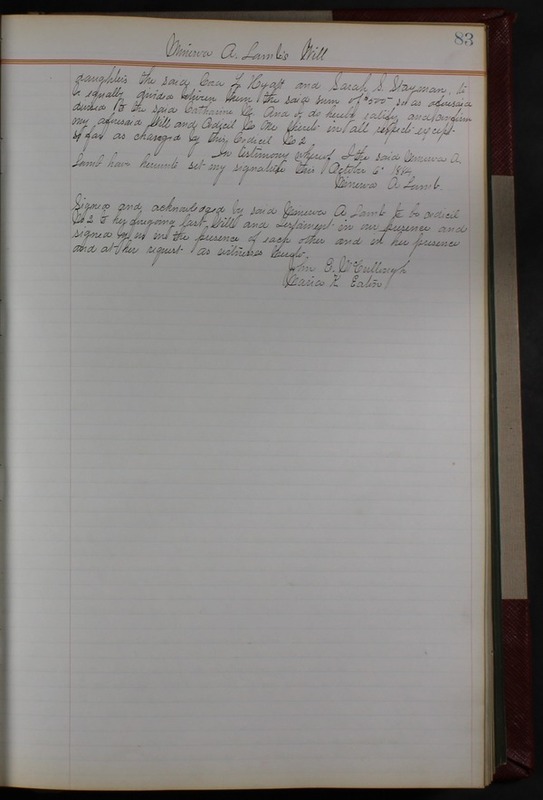 83
Minerva A. Lamb's Will
daughters the said Cora L Hyatt and Sarah S. Stayman, to
be equally divided between them the said sum of $500 so as aforesaid
devised to the said Catharine. And I do hereby ratify and confirm
my aforesaid Will and Codicil No One thereto in all respects except
so far as changed by this Codicil No 2
In testimony whereof I the said Minerva A.
Lamb have hereunto set my signature this October 6" 
Minerva A Lamb.
Signed and acknowledged by said Minerva A Lamb to be codicil
No 2 to her foregoing last Will and Testament in our presence and
signed by us in the presence of each other and in her presence
and at her request as witnesses hereto.
John G. McCullough
Eaton